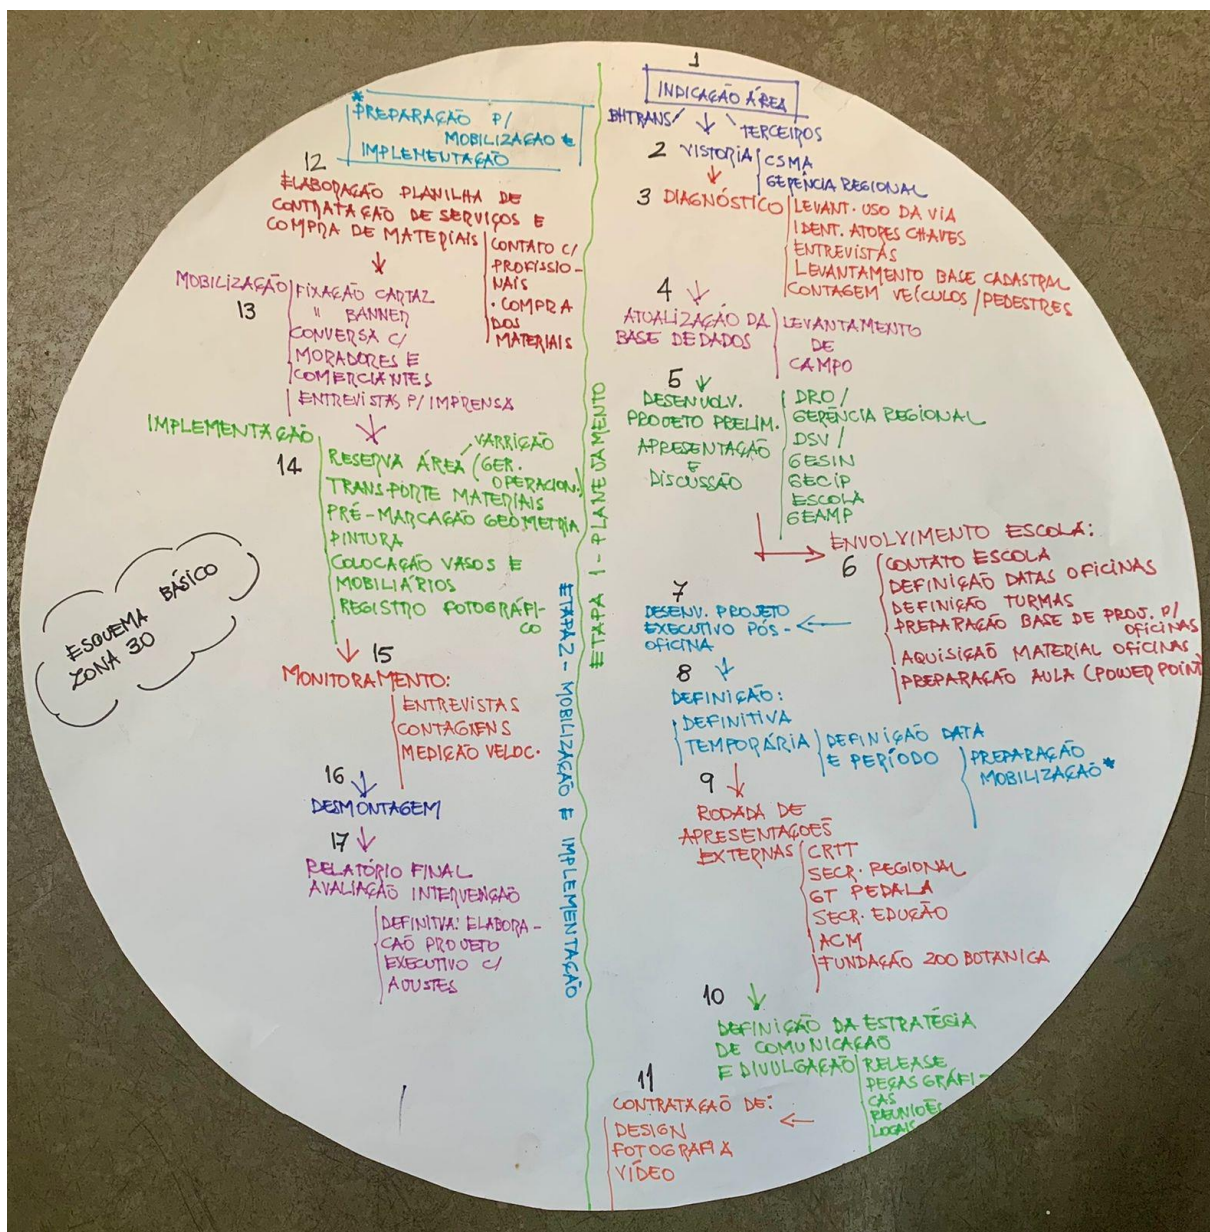 1
INDICAÇÃO ÁREA
BHTRANS
TERCEIROS
2 VISTORIA
CSMA
GERÊNCIA REGIONAL
3 DIAGNÓSTICO
LEVANT. USO DA VIA
IDENT. ATORES CHAVES
ENTREVISTAS
LEVANTAMENTO BASE CADASTRAL
CONTAGEM VEÍCULOS / PEDESTRES
4
ATUALIZAÇÃO DA
BASE DE DADOS
LEVANTAMENTO
DE
CAMPO
5
DESENVOLV.
PROJETO PRELIM.
APRESENTAÇÃO
E
DISCUSSÃO
DRO /
GERÊNCIA REGIONAL
DSV /
GESIN
GECIP
ESCOLA
GEAMP
ENVOLVIMENTO ESCOLA:
6
CONTATO ESCOLA
DEFINIÇÃO DATAS OFICINAS
DEFINIÇÃO TURMAS
PREPARAÇÃO BASE DE PROJ. P/
OFICINAS
AQUISIÇÃO MATERIAL OFICINAS
PREPARAÇÃO AULA (POWER POINT)
7
DESENV. PROJETO
EXECUTIVO PÓS-
OFICINA
8
DEFINIÇÃO:
DEFINITIVA
TEMPORÁRIA
DEFINIÇÃO DATA
E PERÍODO
PREPARAÇÃO
MOBILIZAÇÃO*
9
RODADA DE
APRESENTAÇOES
EXTERNAS
CRTT
SECR. REGIONAL
GT PEDALA
SECR. EDUÇÃO
ACM
FUNDAÇÃO ZOO BOTANICA
10
DEFINIÇÃO DA ESTRATÉGIA
DE COMUNICAÇÃO
E DIVULGAÇÃO
RELEASE
PEÇAS GRÁFI-
CAS
REUNIÕES
LOCAIS
11
CONTRATAÇÃO DE:
DESIGN
FOTOGRAFIA
VÍDEO
ETAPA 1 - PLANEJAMENTO
ETAPA 2 - MOBILIZAÇÃO E IMPLEMENTAÇÃO
*
PREPARAÇÃO P/
MOBILIZAÇÃO E
IMPLEMENTAÇÃO
12
ELABORAÇÃO PLANILHA DE
CONTRATAÇÃO DE SERVIÇOS E
COMPRA DE MATERIAIS
CONTATO C/
PROFISSIO-
NAIS
• COMPRA
DOS
MATERIAIS
MOBILIZAÇÃO
13
FIXAÇÃO CARTAZ
" BANNER
CONVERSA C/
MORADORES E
COMERCIANTES
ENTREVISTAS P/ IMPRENSA
IMPLEMENTAÇÃO
14
RESERVA ÁREA (GER.
OPERACION.)
VARRIÇÃO
TRANSPORTE MATERIAIS
PRÉ-MARCAÇÃO GEOMETRIA
PINTURA
COLOCAÇÃO VASOS E
MOBILIÁRIOS
REGISTRO FOTOGRÁFI-
CO
15
MONITORAMENTO:
ENTREVISTAS
CONTAGENS
MEDIÇÃO VELOC.
16
DESMONTAGEM
17
RELATÓRIO FINAL
AVALIAÇÃO INTERVENÇÃO
DEFINITVA: ELABORA-
CAÕ PROJETO
EXECUTIVO C/
AJUSTES
ESQUEMA BÁSICO
ZONA 30